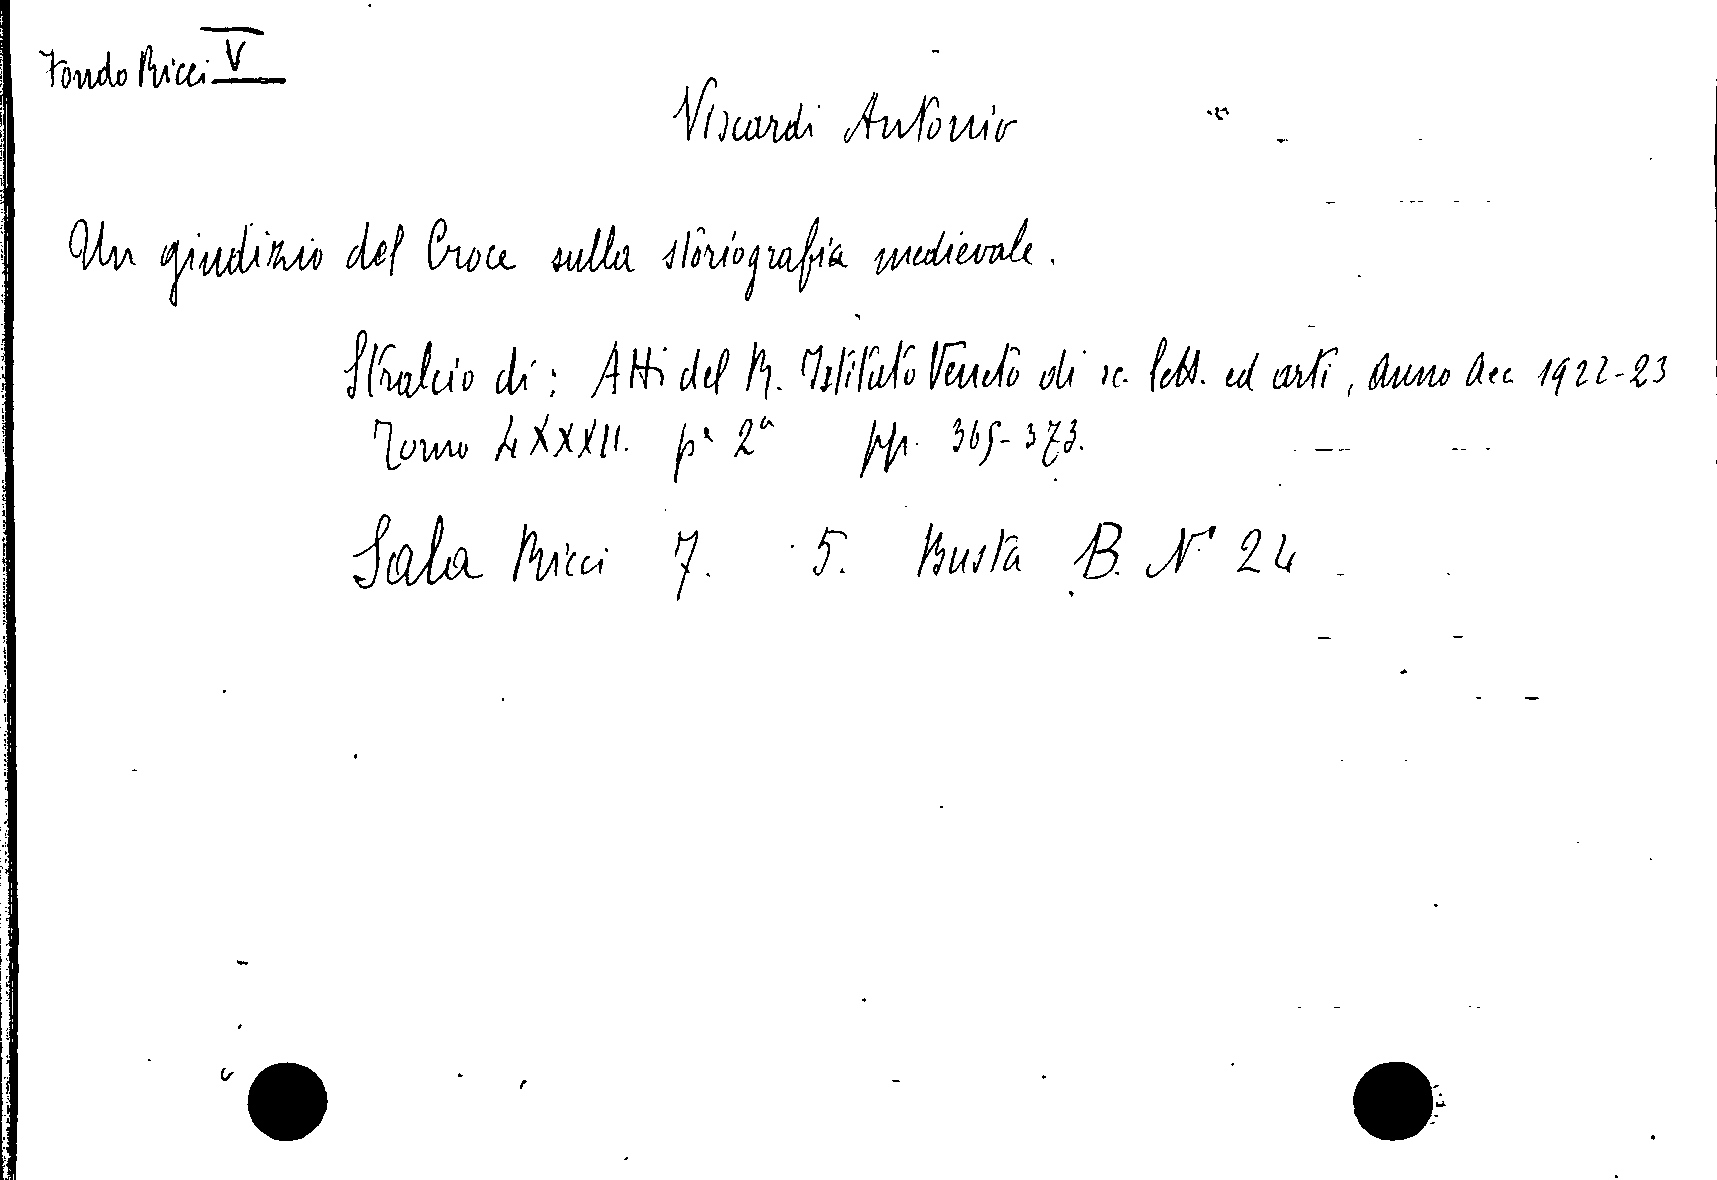 Fondo Ricci V
Viscardi Antonio
Un giudizio del Croce sulla storiografia medievale.
Stralcio di: Atti del R. Istituto Veneto di sc. lett. ed arti, Anno Acc 1922-23
Tomo LXXXII. pª 2ª pp. 365-373.
Sala Ricci 7. 5. Busta B. N° 24